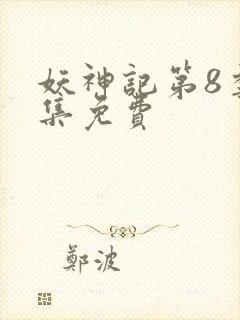 妖神記第8季
集免費
鄭波